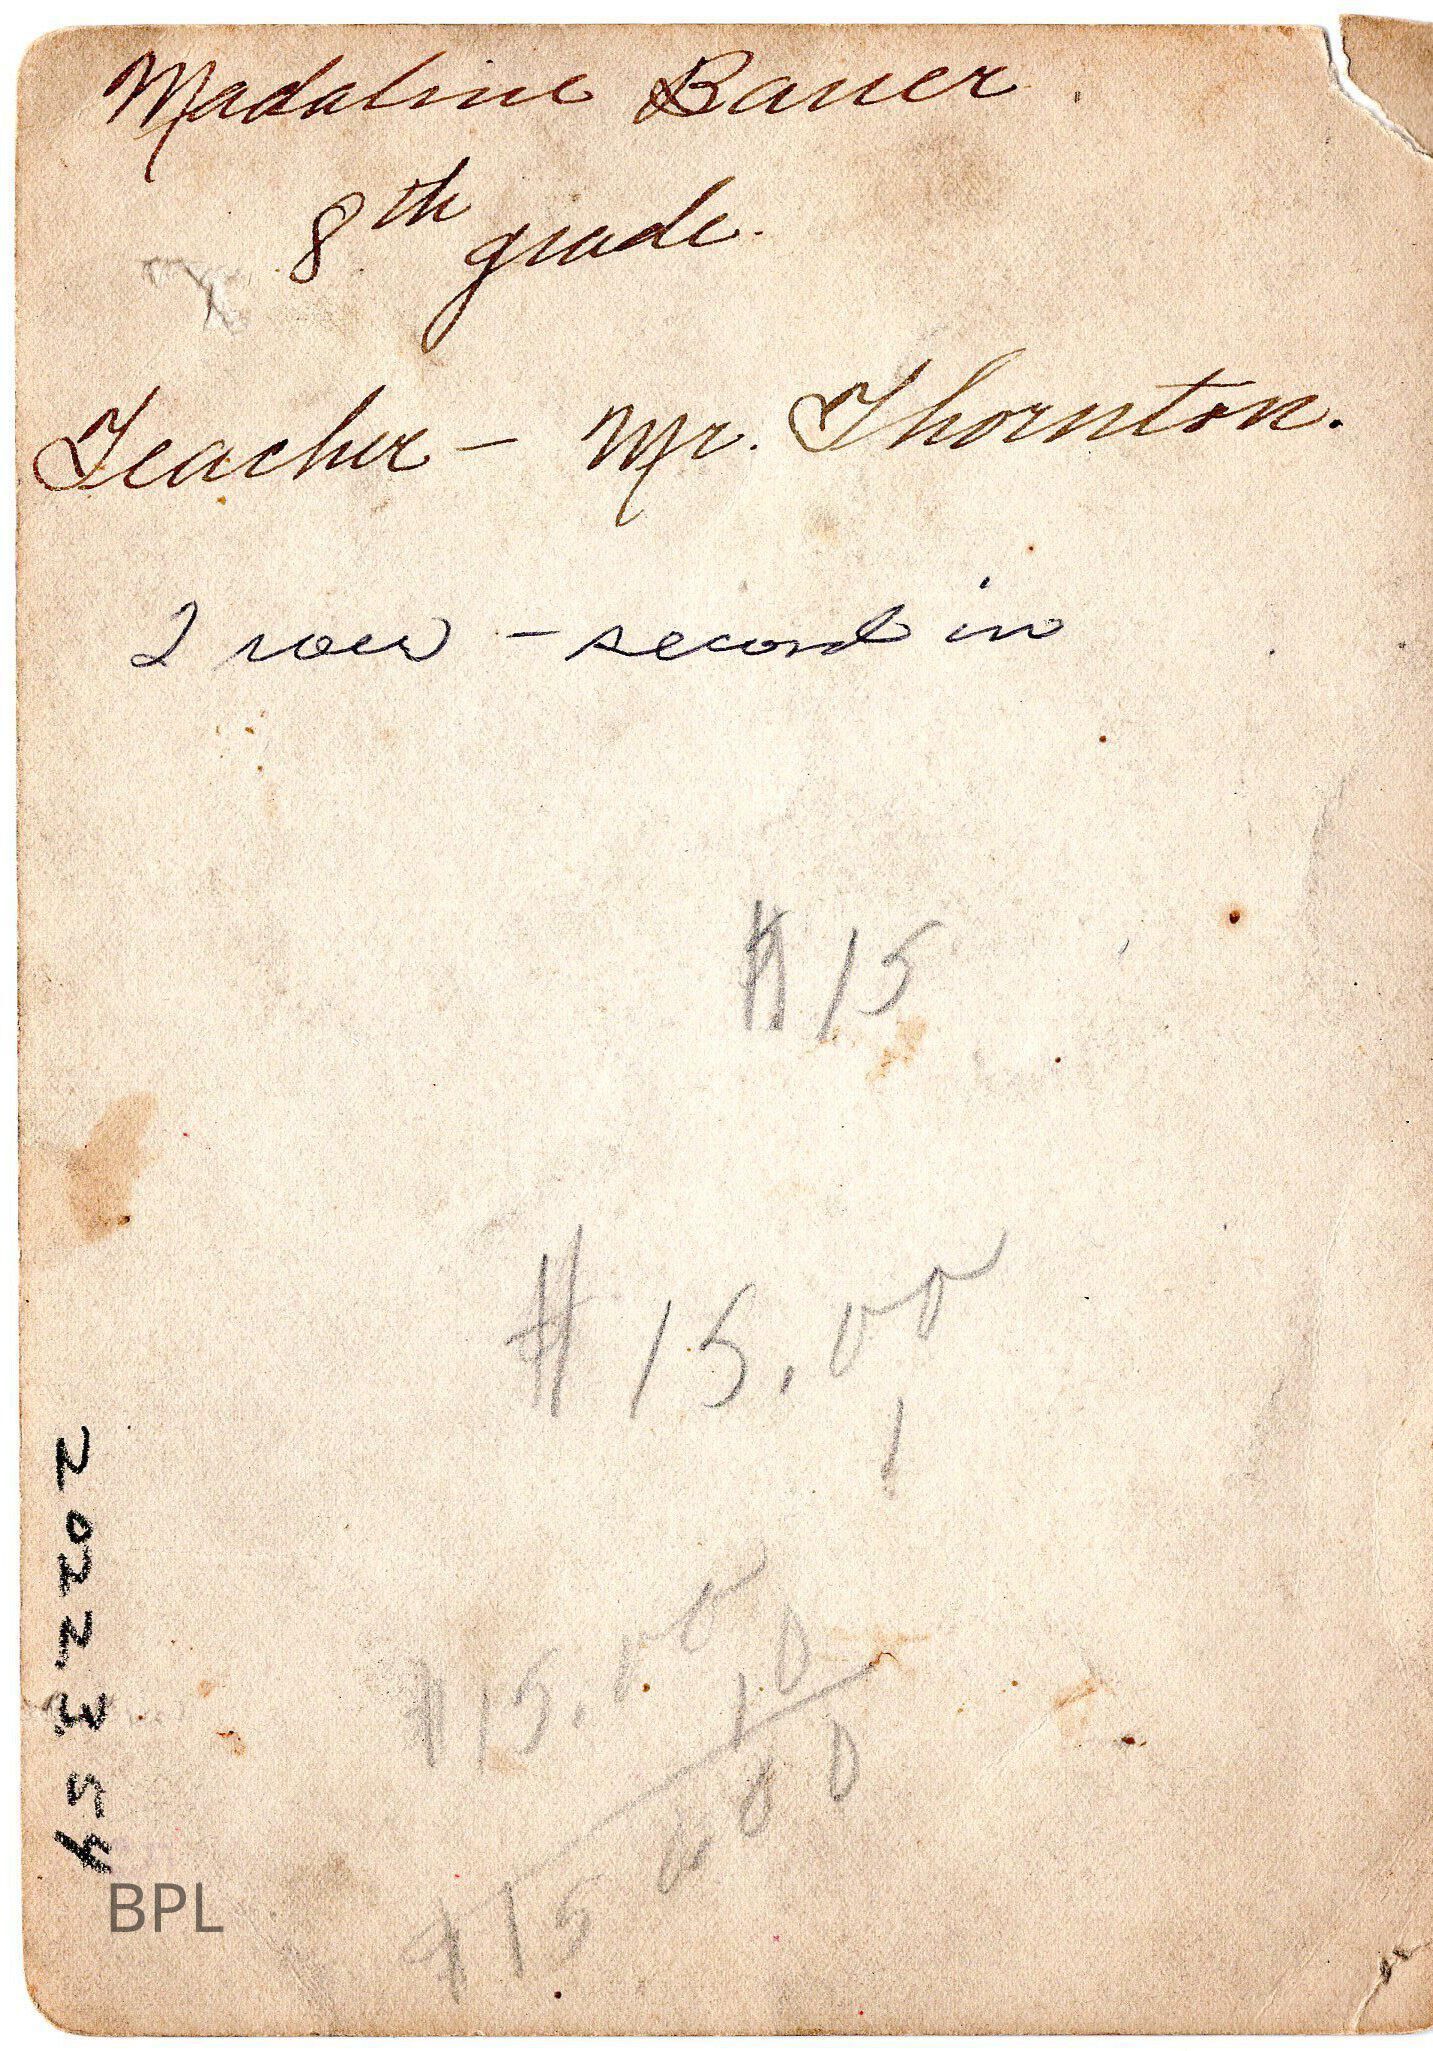 Madaline Bauer
8th grade.
Teacher – Mr. Thornton.
2 row – second in
$15
$15.00
1
$15.00
10
$15000
BPL